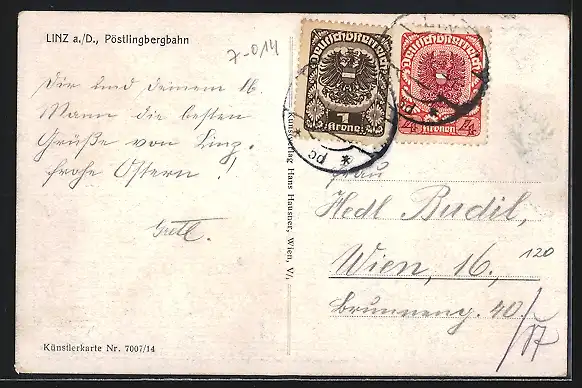 LINZ a./D., Pöstlingbergbahn
7-014
Dir und deinem lb.
Mann die besten
Grüße von Linz.
frohe Ostern !
Gretl.
Künstlerkarte Nr. 7007/14
Kunstverlag Hans Hausner, Wien, V/
Deutschösterreich
1
Krone
Deutschösterreich
4 Kronen 4
Frau
Hedl Budil,
Wien, 16,
Brunneng. 40/
17
120